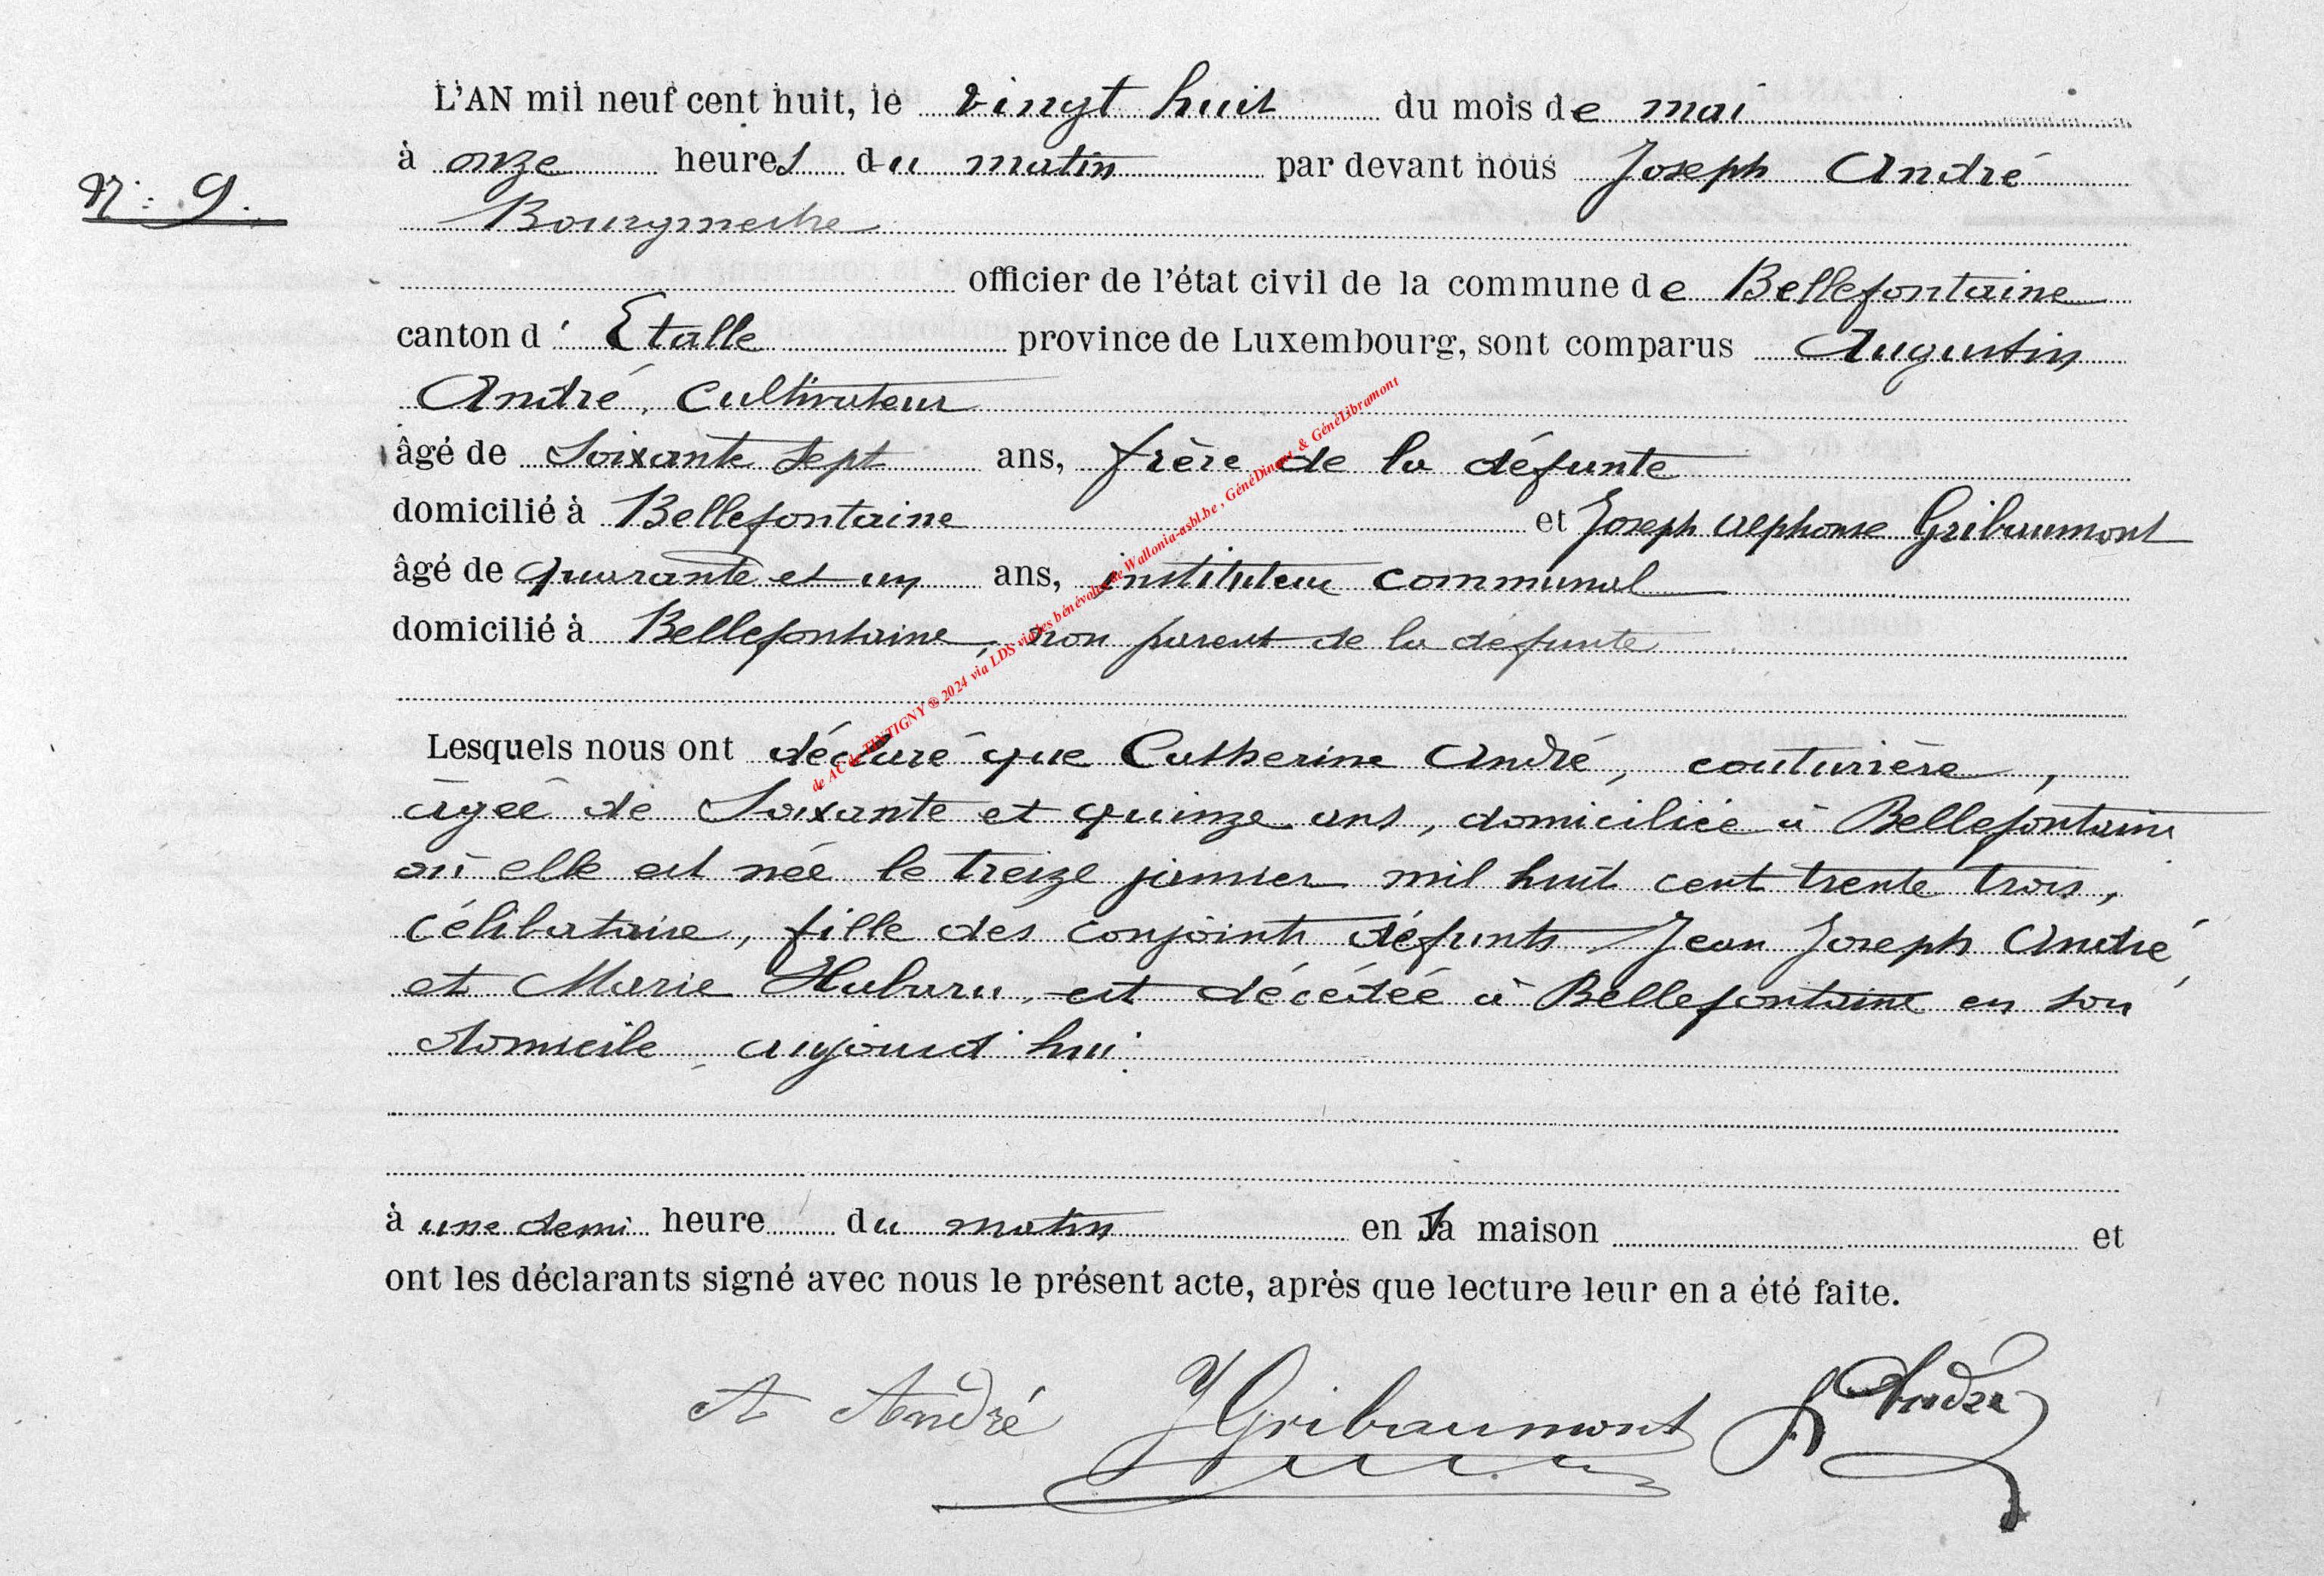 L'AN mil neuf cent huit, le vingt huit du mois de mai
à onze heures du matin par devant nous Joseph André
N: 9.
Bourgmestre
officier de l'état civil de la commune de Bellefontaine
canton d' Etalle province de Luxembourg, sont comparus Augustin
André, cultivateur
âgé de Soixante sept ans, frère de la défunte
domicilié à Bellefontaine et Joseph Alphonse Gribaumont
âgé de quarante et un ans, instituteur communal
domicilié à Bellefontaine, non parent de la défunte
Lesquels nous ont déclaré que Catherine André, couturière,
âgée de Soixante et quinze ans, domiciliée à Bellefontaine
où elle est née le treize janvier mil huit cent trente trois,
célibataire, fille des conjoints défunts Jean Joseph André
et Marie Hubaru, est décédée à Bellefontaine en son
domicile aujourd'hui
à une demi heure du matin en sa maison et
ont les déclarants signé avec nous le présent acte, après que lecture leur en a été faite.
A André JGribaumont J André
de AC de TINTIGNY ® 2024 via LDS via les bénévoles de Wallonia-asbl.be, GénéDinant & GénéLibramont